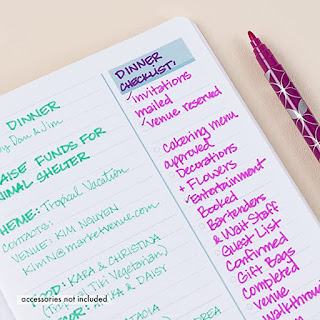 DINNER
by Dom & Jim
FUNDS FOR
ANIMAL SHELTER
THEME: Tropical Vacation
CONTACTS:
VENUE: KIM NGUYEN
KimN@marketvenue.com
FOOD: KARA & CHRISTINA
Vegetarian)
& DAISY
DINNER
CHECKLIST:
✓invitations
mailed
✓venue reserved
catering menu
approved
Decorations
+ Flowers
✓Entertainment
Booked
Bartenders
& Wait Staff
Guest List
Confirmed
Gift Bags
Completed
Venue
Walkthrough
accessories not included